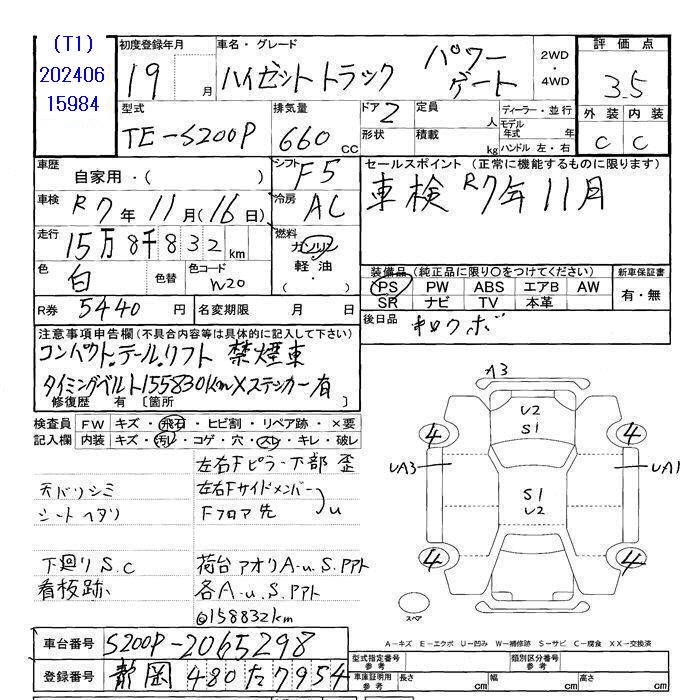 (T1)
202406
15984
初度登録年月
19 月
車名・グレード
ハイゼットトラック パワーゲート
2WD
・
4WD
評価点
3.5
外装 内装
C C
型式
TE-S200P
排気量
660 CC
ドア 2
定員 人
ディーラー・並行
モデル年式 年
形状
積載 kg
ハンドル 左・右
車歴
自家用・( )
シフト F5
セールスポイント (正常に機能するものに限ります)
車検 R7年11月
車検 R7年11月(16日)
冷房 AC
走行 15万8千832km
燃料
ガソリン
軽油・
( )
色 白
色替
色コード W20
装備品 (純正品に限り○をつけてください)
新車保証書
PS PW ABS エアB AW
SR ナビ TV 本革
有・無
R券 5440円
名変期限 月 日
後日品
注意事項申告欄(不具合内容等は具体的に記入して下さい)
コンパクト.テール.リフト 禁煙車
タイミングベルト155830km×ステッカー有
修復歴 有〔箇所
検査員 FW キズ・飛石・ヒビ割・リペア跡・×要
記入欄 内装 キズ・汚レ・コゲ・穴・スレ・キレ・破レ
左右Fピラー下部 歪
天バリシミ 左右Fサイドメンバー
シートヘタリ Fフロア先 u
下廻りS.C 荷台アオリA-u.S.アト
看板跡 各A-u.S.アト
@158832km
A3
U2
S1
4 4
UA3 UA1
S1
U2
4 4
スペア
A-キズ E-エクボ U-凹み W-補修跡 S-サビ C-腐食 XX-交換済
車台番号 S200P-2065298
登録番号 静岡 480 た 7954
型式指定番号 参考
類別区分番号 参考
車庫証明用 参考
長さ cm 幅 cm 高さ cm